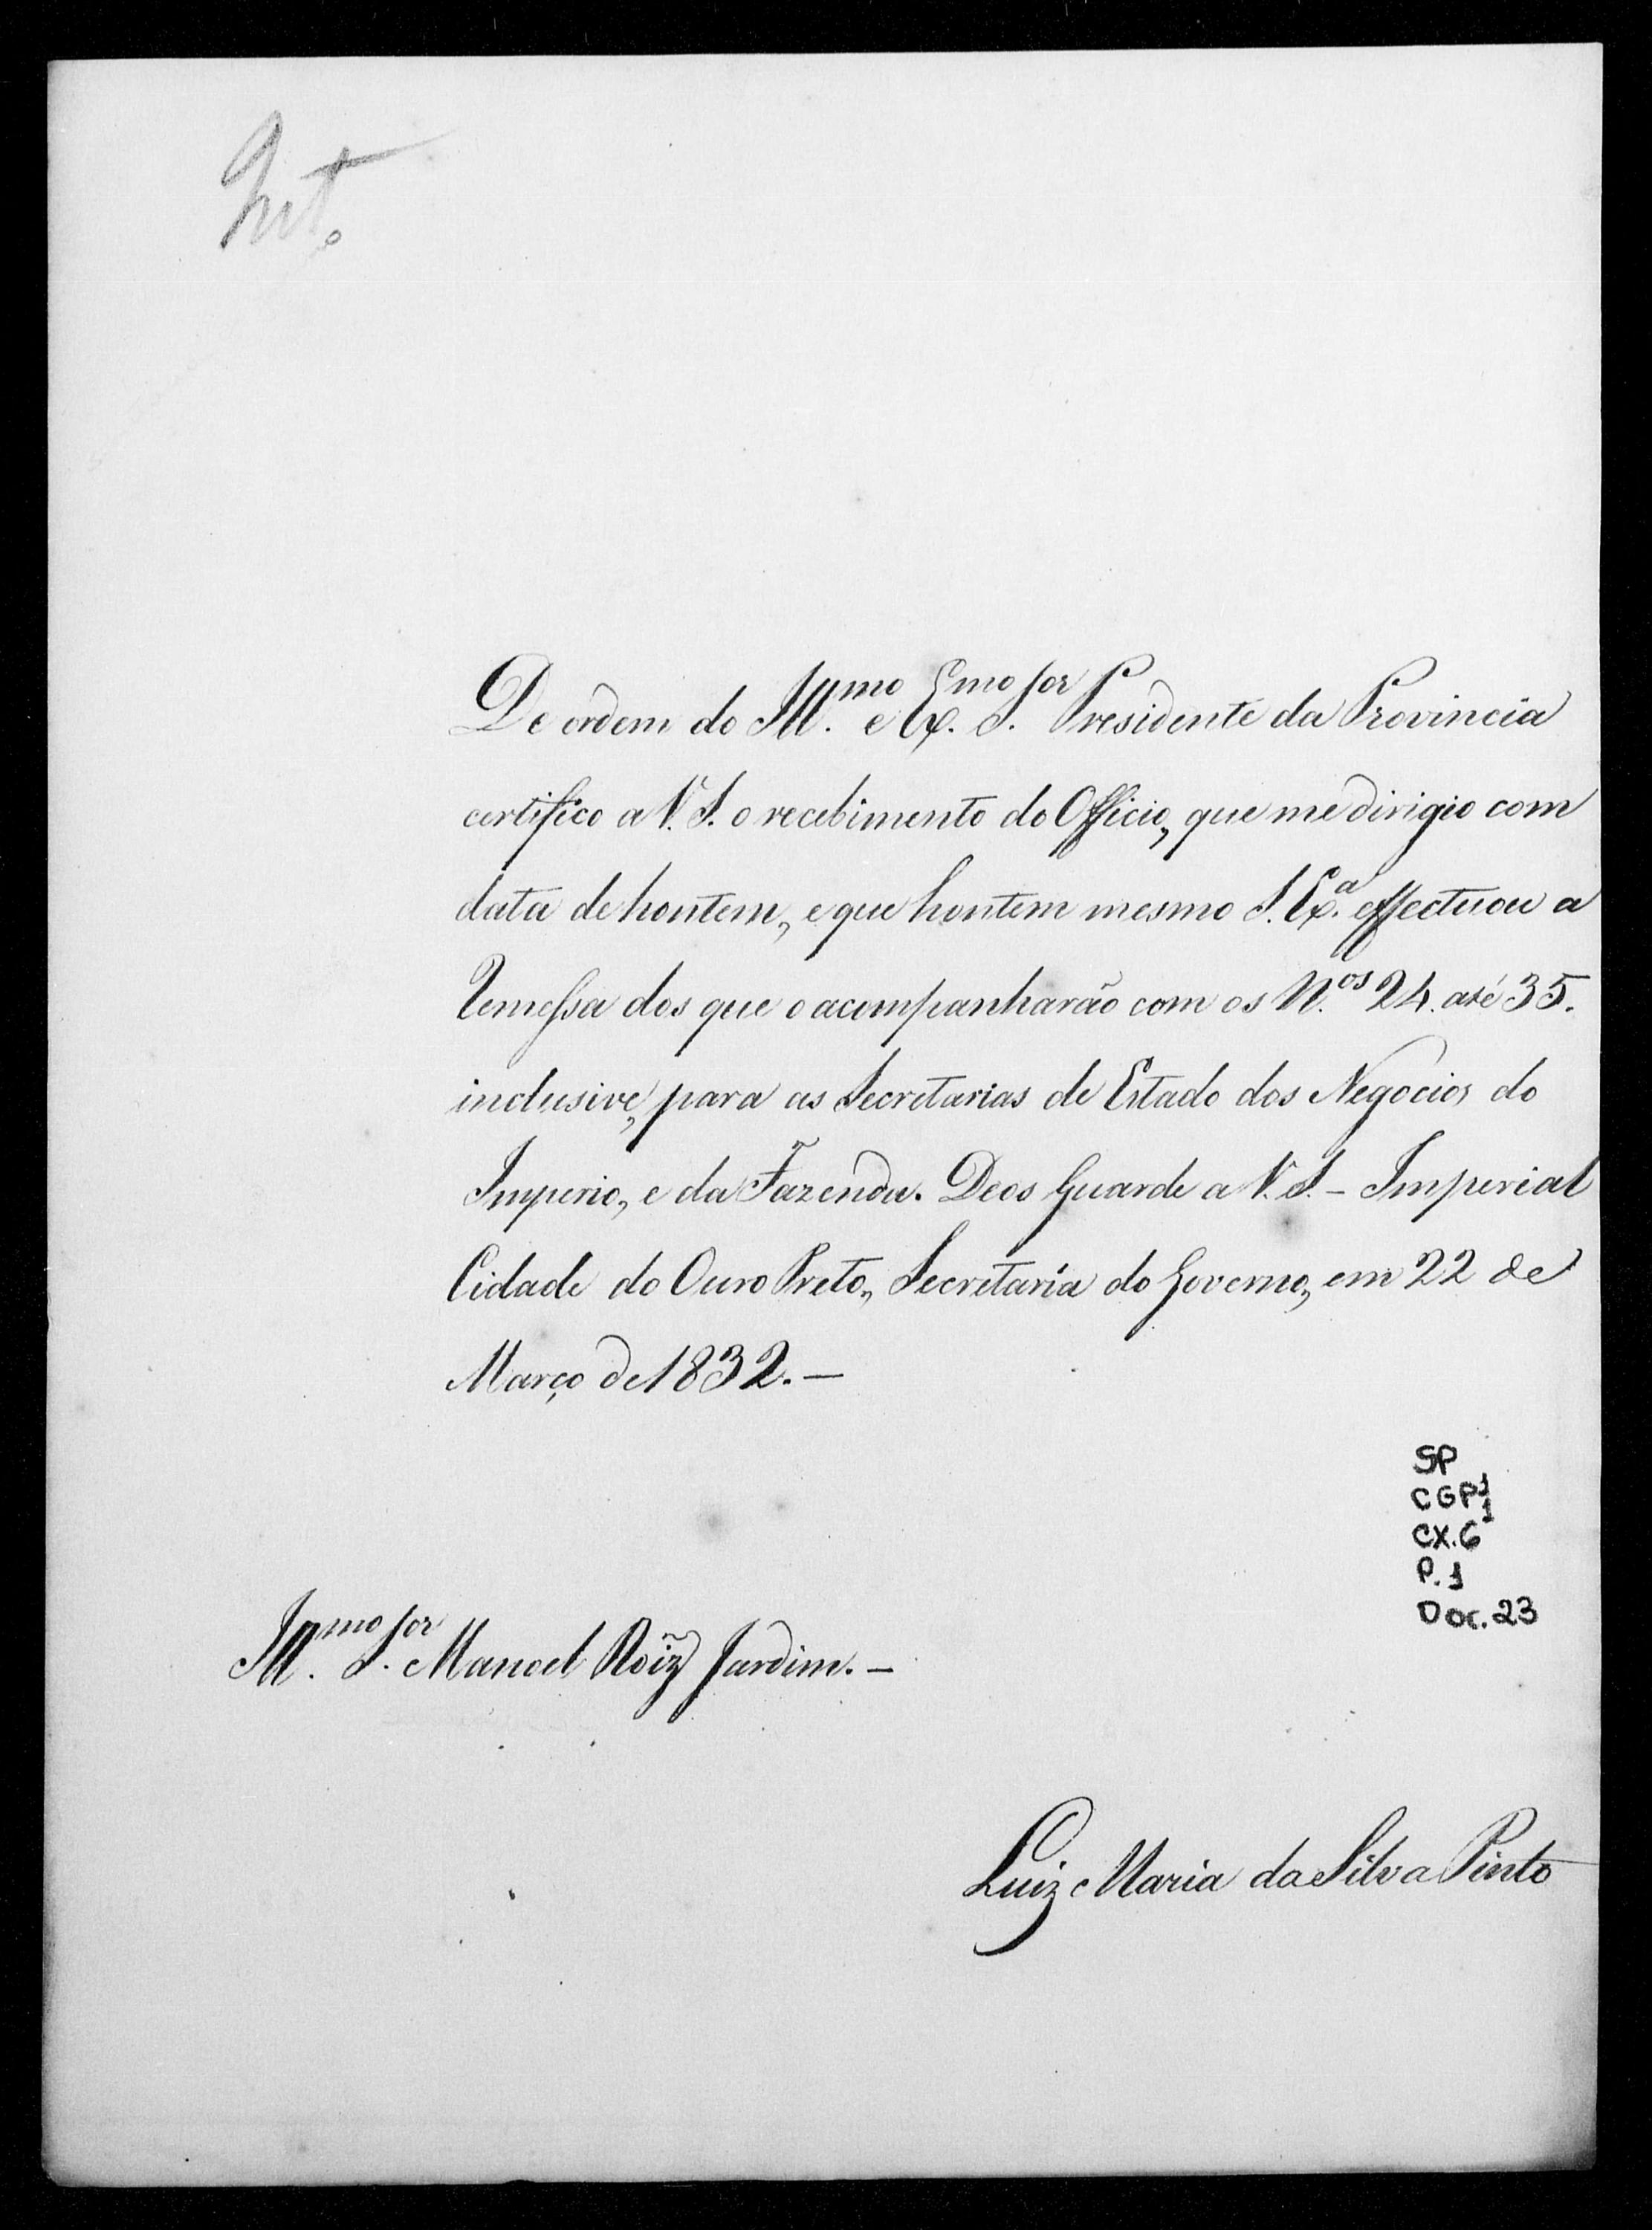 Int.
De ordem do Ill.mo e Ex.mo S.or Presidente da Provincia
certifico a V. S. o recebimento do Officio, que me dirigio com
data de hontem, e que hontem mesmo S. Ex.a effectuou a
Remessa dos que o acompanharão com os N.os 24. até 35.
inclusive, para as Secretarias de Estado dos Negocios do
Imperio, e da Fazenda. Deos Guarde a V. S. - Imperial
Cidade do Ouro Preto, Secretaria do Governo, em 22 de
Março de 1832. —
SP
CGP 1
1
CX. 6
P. 1
Doc. 23
Ill.mo S.or Manoel Roiz Jardim. —
Luiz Maria da Silva Pinto